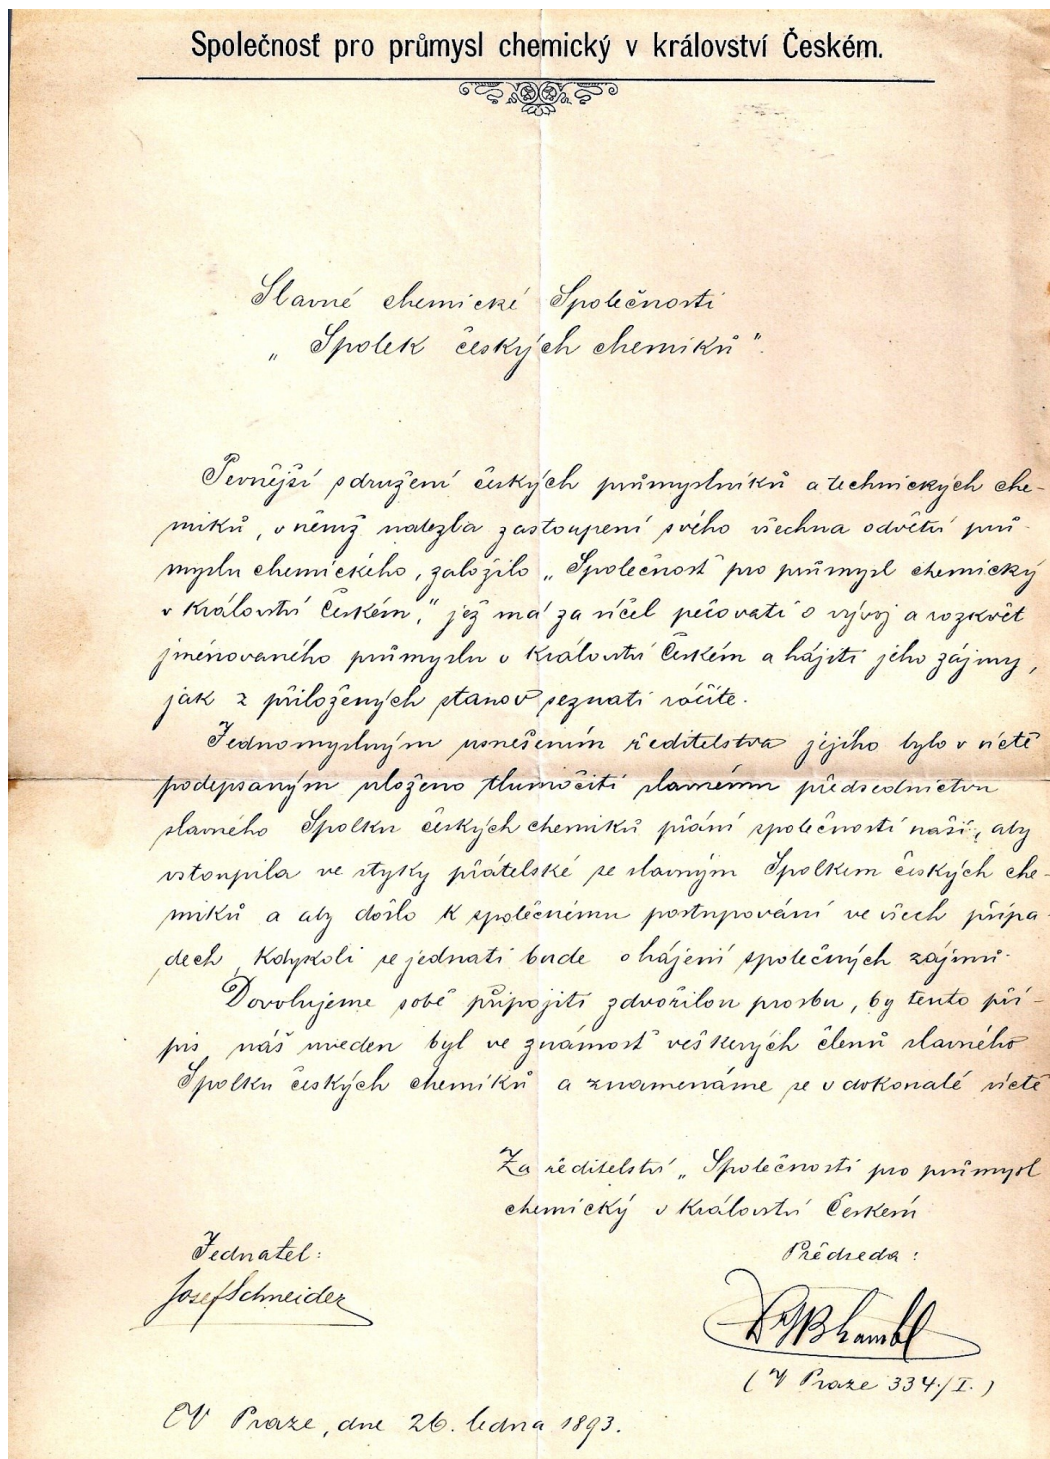 Společnosť pro průmysl chemický v království Českém.
Slavné chemické Společnosti
„Spolek českých chemiků".
Pevnější sdružení českých průmyslníků a technických che-
miků, v němž nalezla zastoupení svého všechna odvětví prů-
myslu chemického, založilo „Společnosť pro průmysl chemický
v Království Českém," jež má za účel pečovati o vývoj a rozkvět
jmenovaného průmyslu v Království Českém a hájiti jeho zájmy,
jak z přiložených stanov seznati ráčíte.
Jednomyslným usnešením ředitelstva jejího bylo v úctě
podepsaným uloženo tlumočiti slavnému předsednictvu
slavného Spolku českých chemiků přání společnosti naší, aby
vstoupila ve styky přátelské se slavným Spolkem českých che-
miků a aby došlo k společnému postupování ve všech přípa-
dech, kdykoli se jednati bude o hájení společných zájmů.
Dovolujeme sobě připojiti zdvořilou prosbu, by tento pří-
pis náš uveden byl ve známosť veškerých členů slavného
Spolku českých chemiků a znamenáme se v dokonalé úctě
Za ředitelství „Společnosti pro průmysl
chemický v Království Českém
Jednatel: Předseda:
Josef Schneider
(V Praze 334./I.)
V Praze, dne 26. ledna 1893.